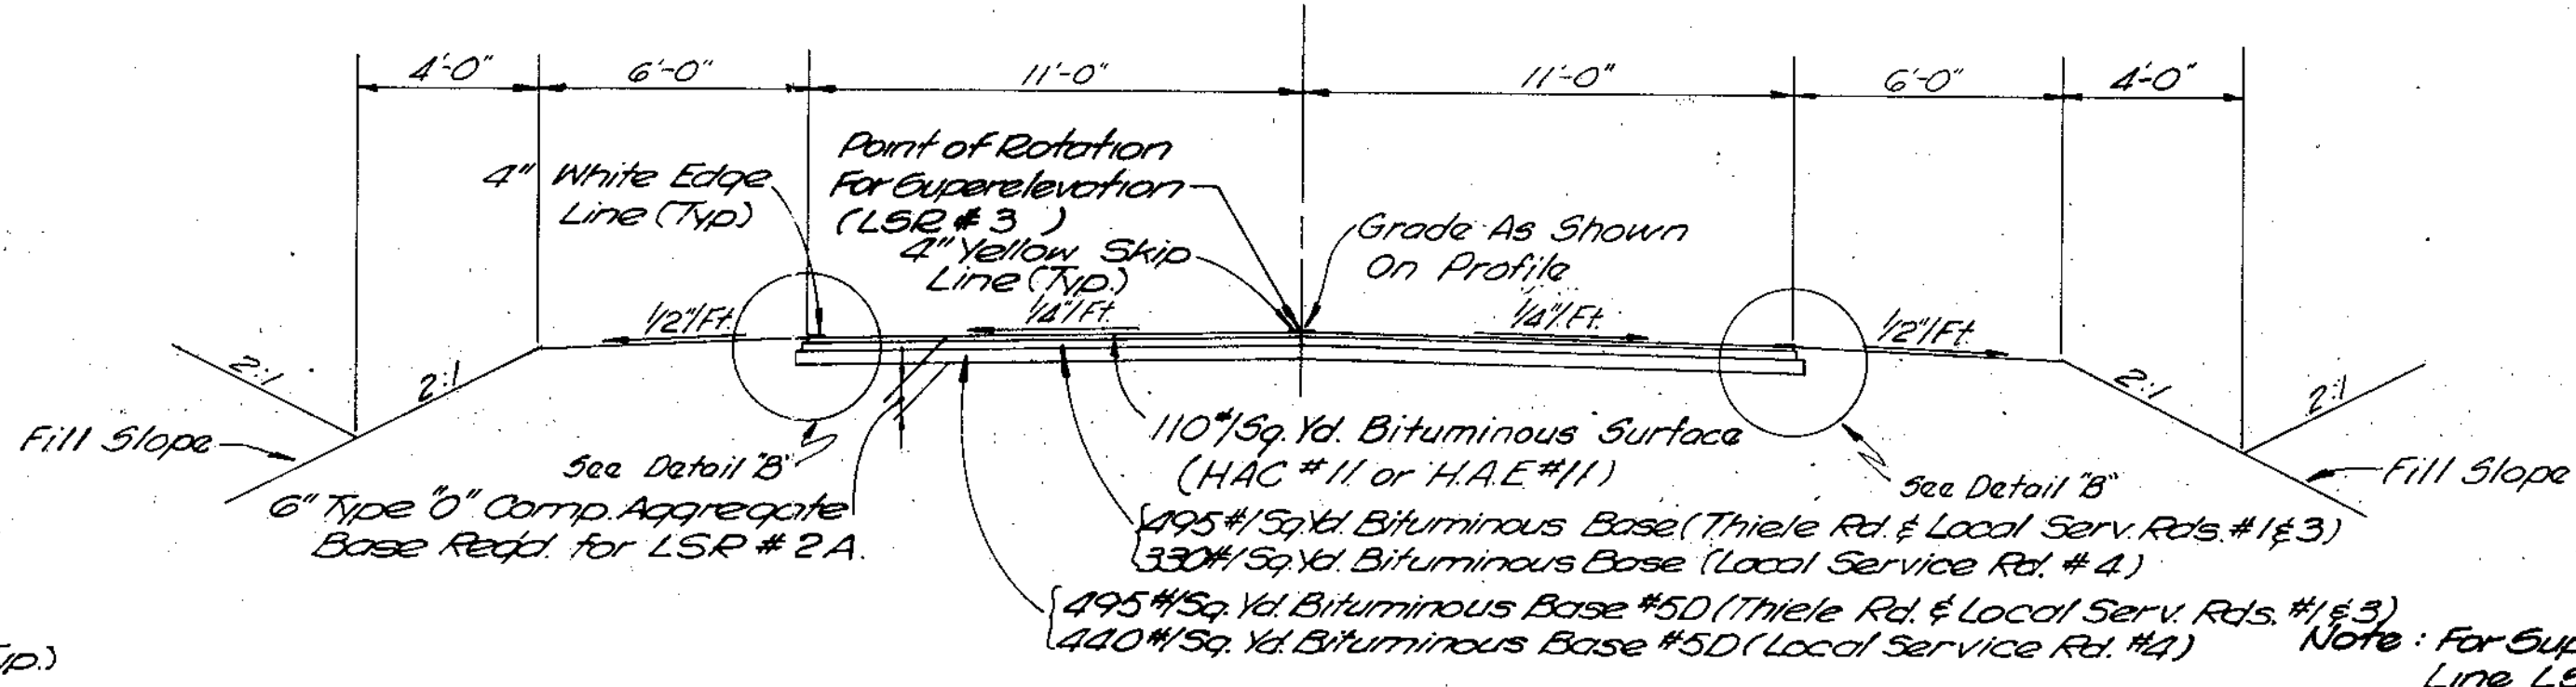 4'-0" 6'-0" 11'-0" 11'-0" 6'-0" 4'-0"
Point of Rotation
For Superelevation
(LSR # 3 )
4" White Edge
Line (Typ)
4" Yellow Skip
Line (Typ.)
Grade As Shown
On Profile
1/2"/Ft. 1/4"/Ft. 1/4"/Ft. 1/2"/Ft.
2:1 2:1 2:1 2:1
Fill Slope
See Detail "B"
6" Type "O" Comp. Aggregate
Base Reqd. for LSR # 2A.
110#/Sq. Yd. Bituminous Surface
(HAC #11 or H.A.E #11)
See Detail "B"
Fill Slope
495#/Sq.Yd. Bituminous Base (Thiele Rd. & Local Serv. Rds. #1 & 3)
330#/Sq.Yd. Bituminous Base (Local Service Rd. #4)
495#/Sq. Yd. Bituminous Base #5D (Thiele Rd. & Local Serv. Rds. #1 & 3)
440#/Sq. Yd. Bituminous Base #5D (Local Service Rd. #4)
Note : For Sup
Line LS
yp.)